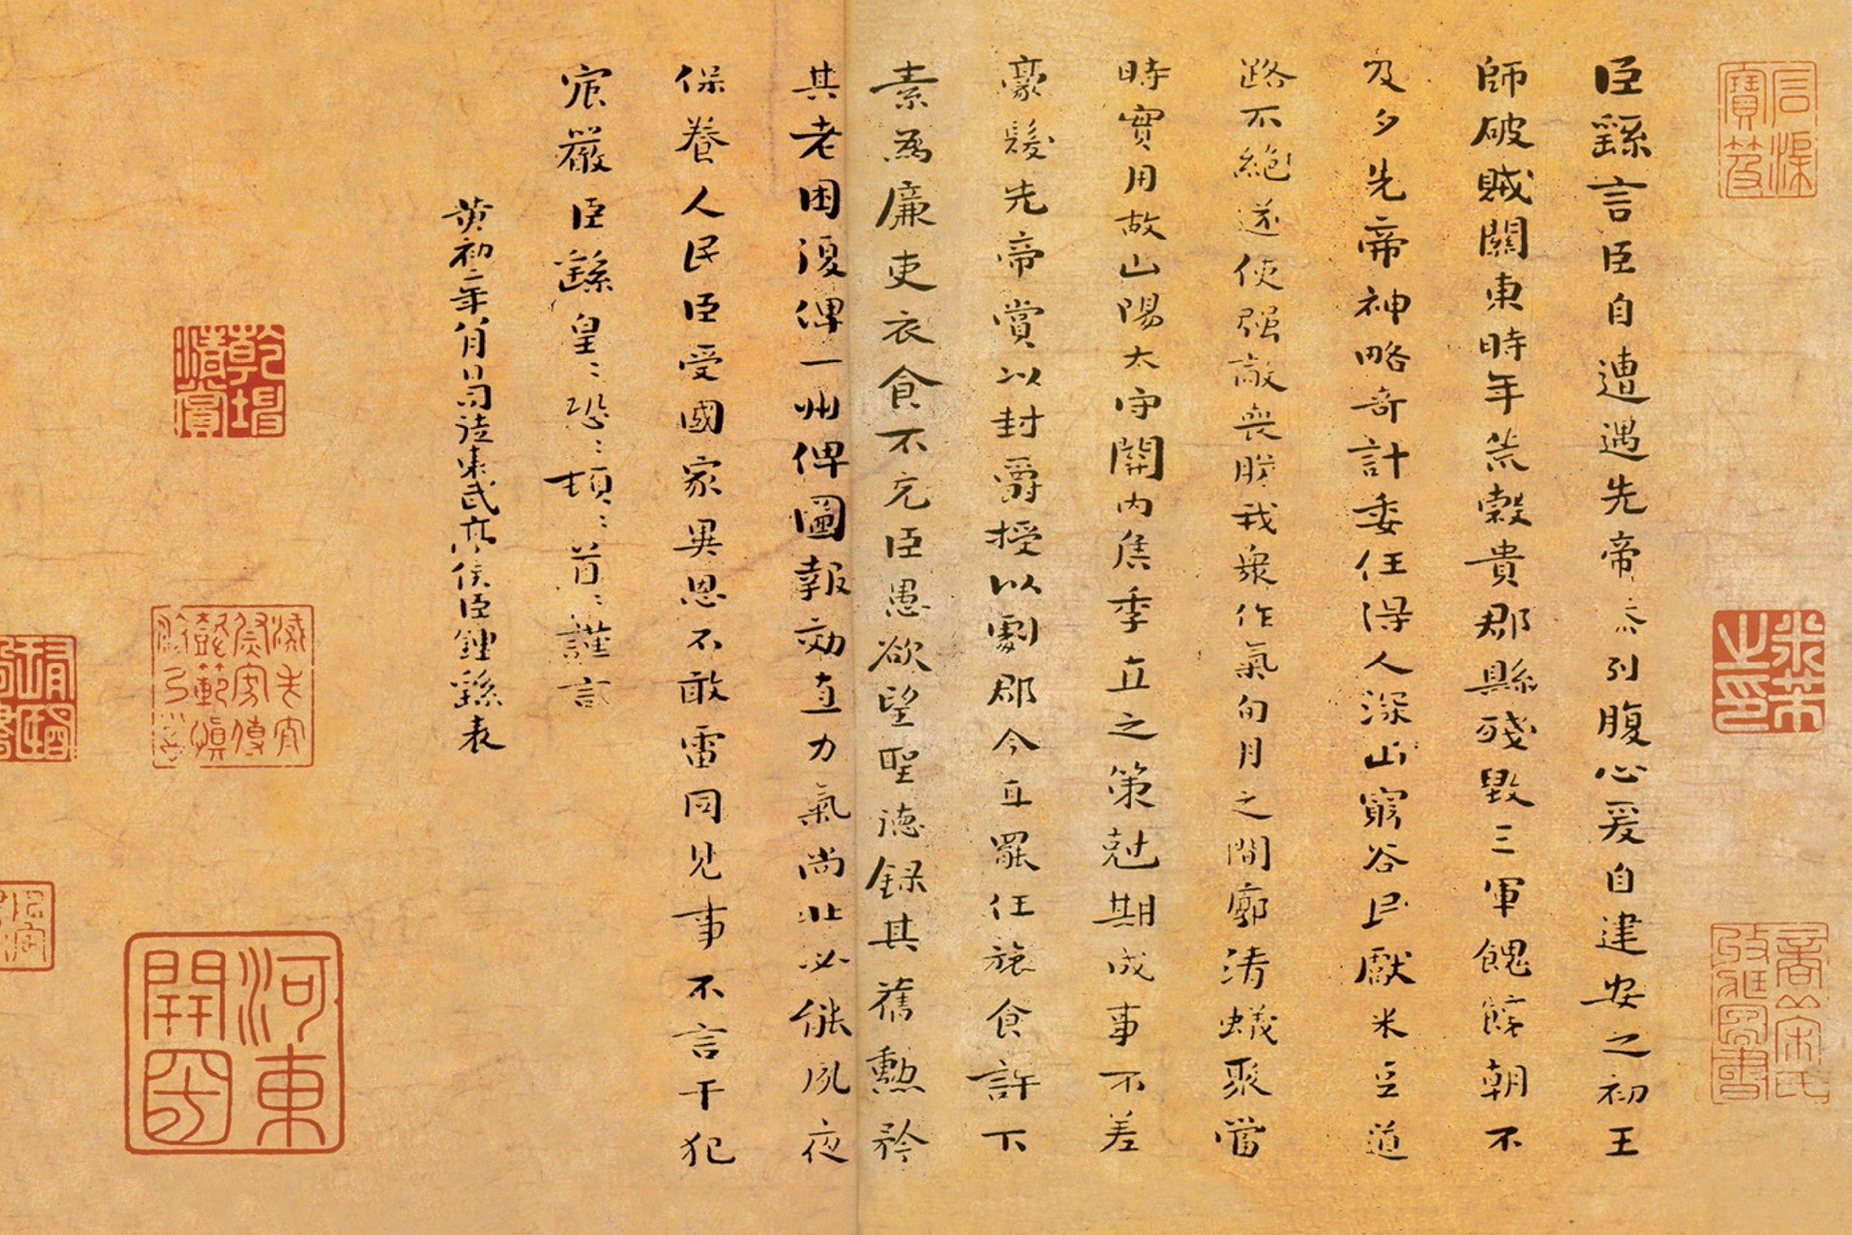 臣繇言臣自遭遇先帝忝列腹心爰自建安之初王
師破賊關東時年荒穀貴郡縣殘毀三軍餽饟朝不
及夕先帝神略奇計委任得人深山窮谷民獻米豆道
路不絕遂使强敵喪膽我衆作氣旬月之間廓清蟻聚當
時實用故山陽太守關內侯季直之策尅期成事不差
豪髮先帝賞以封爵授以劇郡今直罷任旅食許下
素爲廉吏衣食不充臣愚欲望聖德錄其舊勳矜
其老困復俾一州俾圖報効直力氣尚壯必能夙夜
保養人民臣受國家異恩不敢雷同見事不言干犯
宸嚴臣繇皇皇恐恐頓頓首首謹言
黃初二年八月日司徒東武亭侯臣鍾繇表
乾坤清賞
河東開國
米芾之印